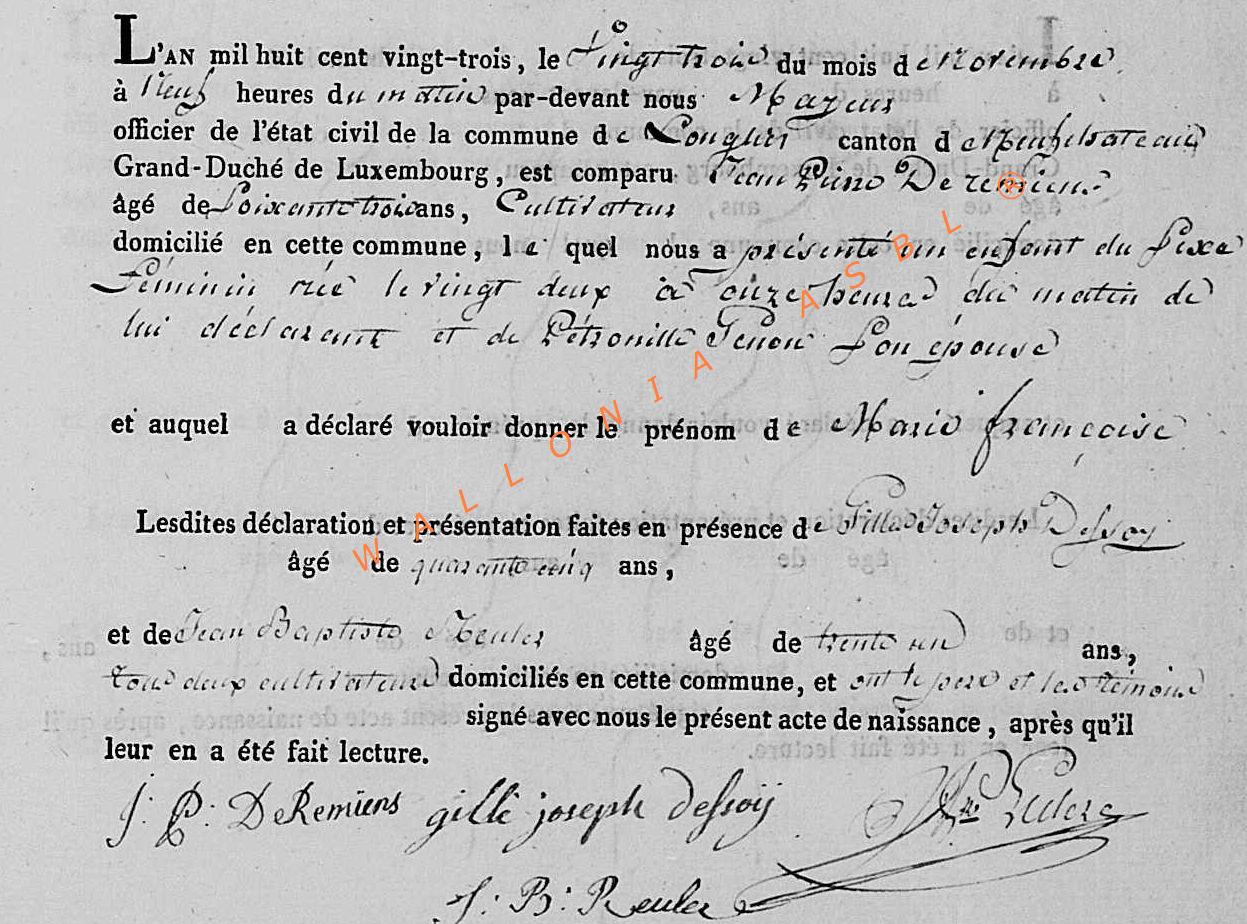 L'AN mil huit cent vingt-trois, le Vingt trois du mois de Novembre
à Neuf heures du matin par-devant nous Mayeur
officier de l'état civil de la commune de Longlier canton de Neufchateau
Grand-Duché de Luxembourg, est comparu Jean Pierre De remiens
âgé de Soixante trois ans, Cultivateur
domicilié en cette commune, le quel nous a présenté un enfant du Sexe
Féminin née le vingt deux à onze heures du matin de
lui déclarant et de Pétronille son épouse
et auquel a déclaré vouloir donner le prénom de Marie françoise
Lesdites déclaration et présentation faites en présence de Gille Joseph Dessoy
âgé de quarante cinq ans,
et de Jean Baptiste Reuler âgé de trente un ans,
tous deux cultivateurs domiciliés en cette commune, et ont le père et les témoins
signé avec nous le présent acte de naissance, après qu'il
leur en a été fait lecture.
J: P: DeRemiens gille joseph dessoÿ
J: B: Reuler
WALLONIA ASBL ®